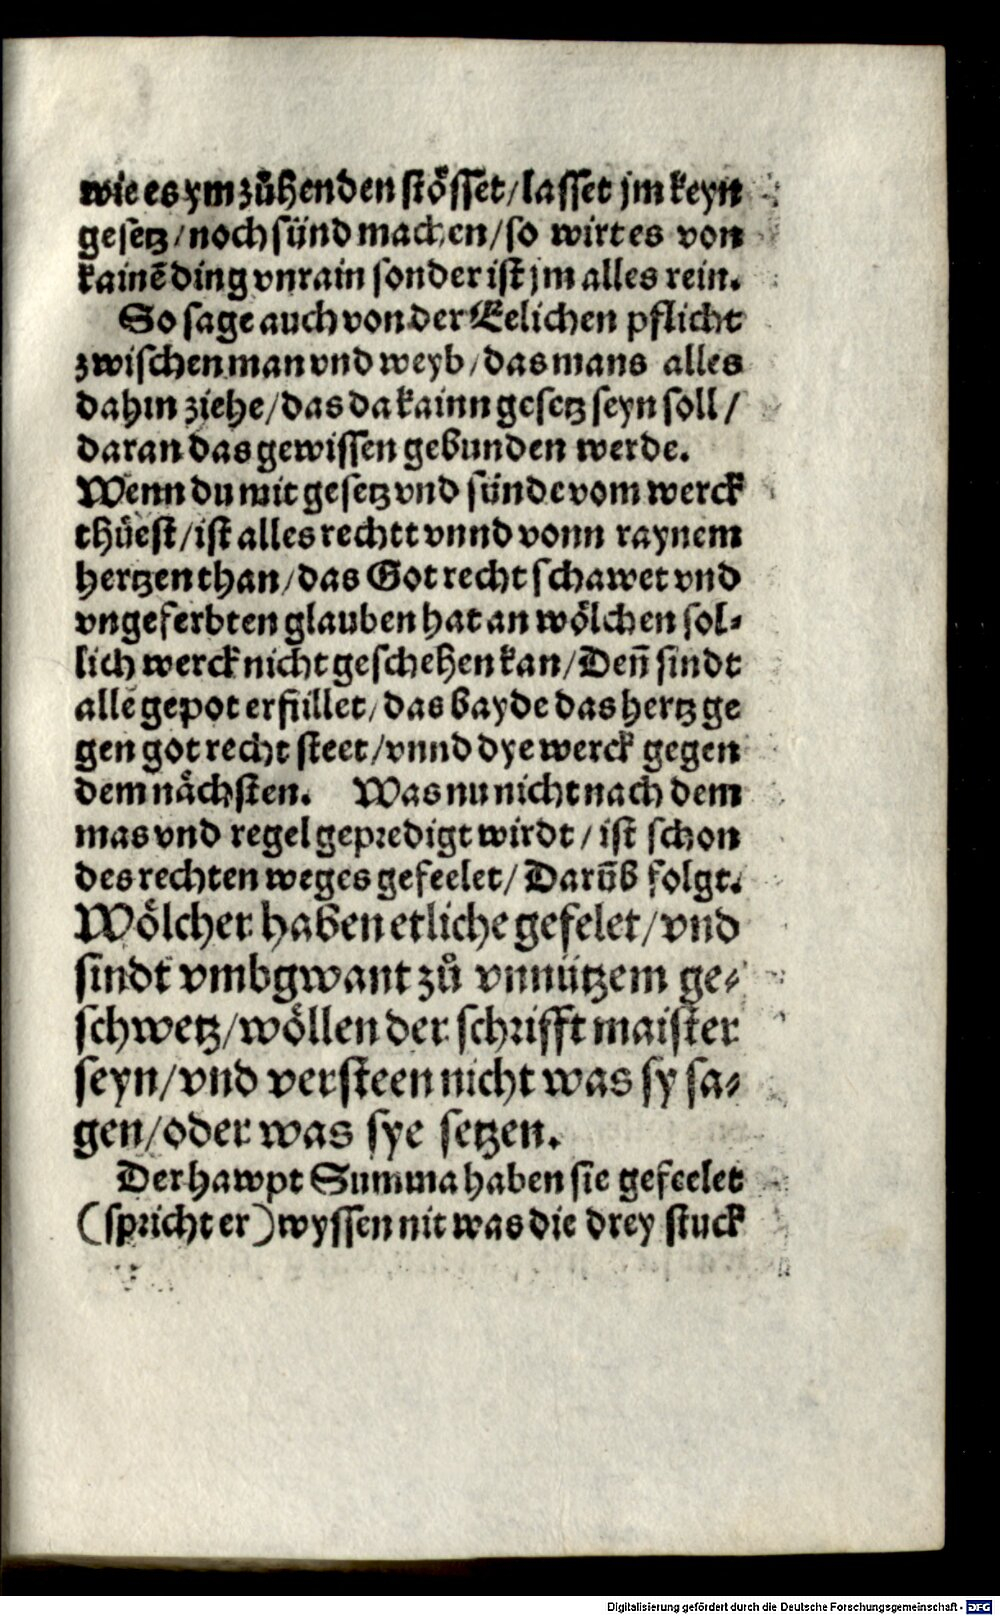 wie es ym zůhenden stősset/lasset jm keyn
gesetz/noch sünd machen/so wirt es von
kainē ding vnrain sonder ist jm alles rein.
So sage auch von der Eelichen pflicht
zwischen man vnd weyb/das mans alles
dahin ziehe/das da kainn gesetz seyn soll/
daran das gewissen gebunden werde.
Wenn du mit gesetz vnd sünde vom werck
thüest/ist alles rechtt vnnd vonn raynem
hertzen than/das Got recht schawet vnd
vngeferbten glauben hat an wölchen sol-
lich werck nicht geschehen kan/Deñ sindt
alle gepot erfüllet/das bayde das hertz ge
gen got recht steet/vnnd dye werck gegen
dem nächsten. Was nu nicht nach dem
mas vnd regel gepredigt wirdt/ist schon
des rechten weges gefeelet/Darūb folgt.
Wölcher haben etliche gefelet/vnd
sindt vmbgwant zů vnnützem ge-
schwetz/wöllen der schrifft maister
seyn/vnd versteen nicht was sy sa-
gen/oder was sye setzen.
Der hawpt Summa haben sie gefeelet
(spricht er) wyssen nit was die drey stuck
Digitalisierung gefördert durch die Deutsche Forschungsgemeinschaft - DFG